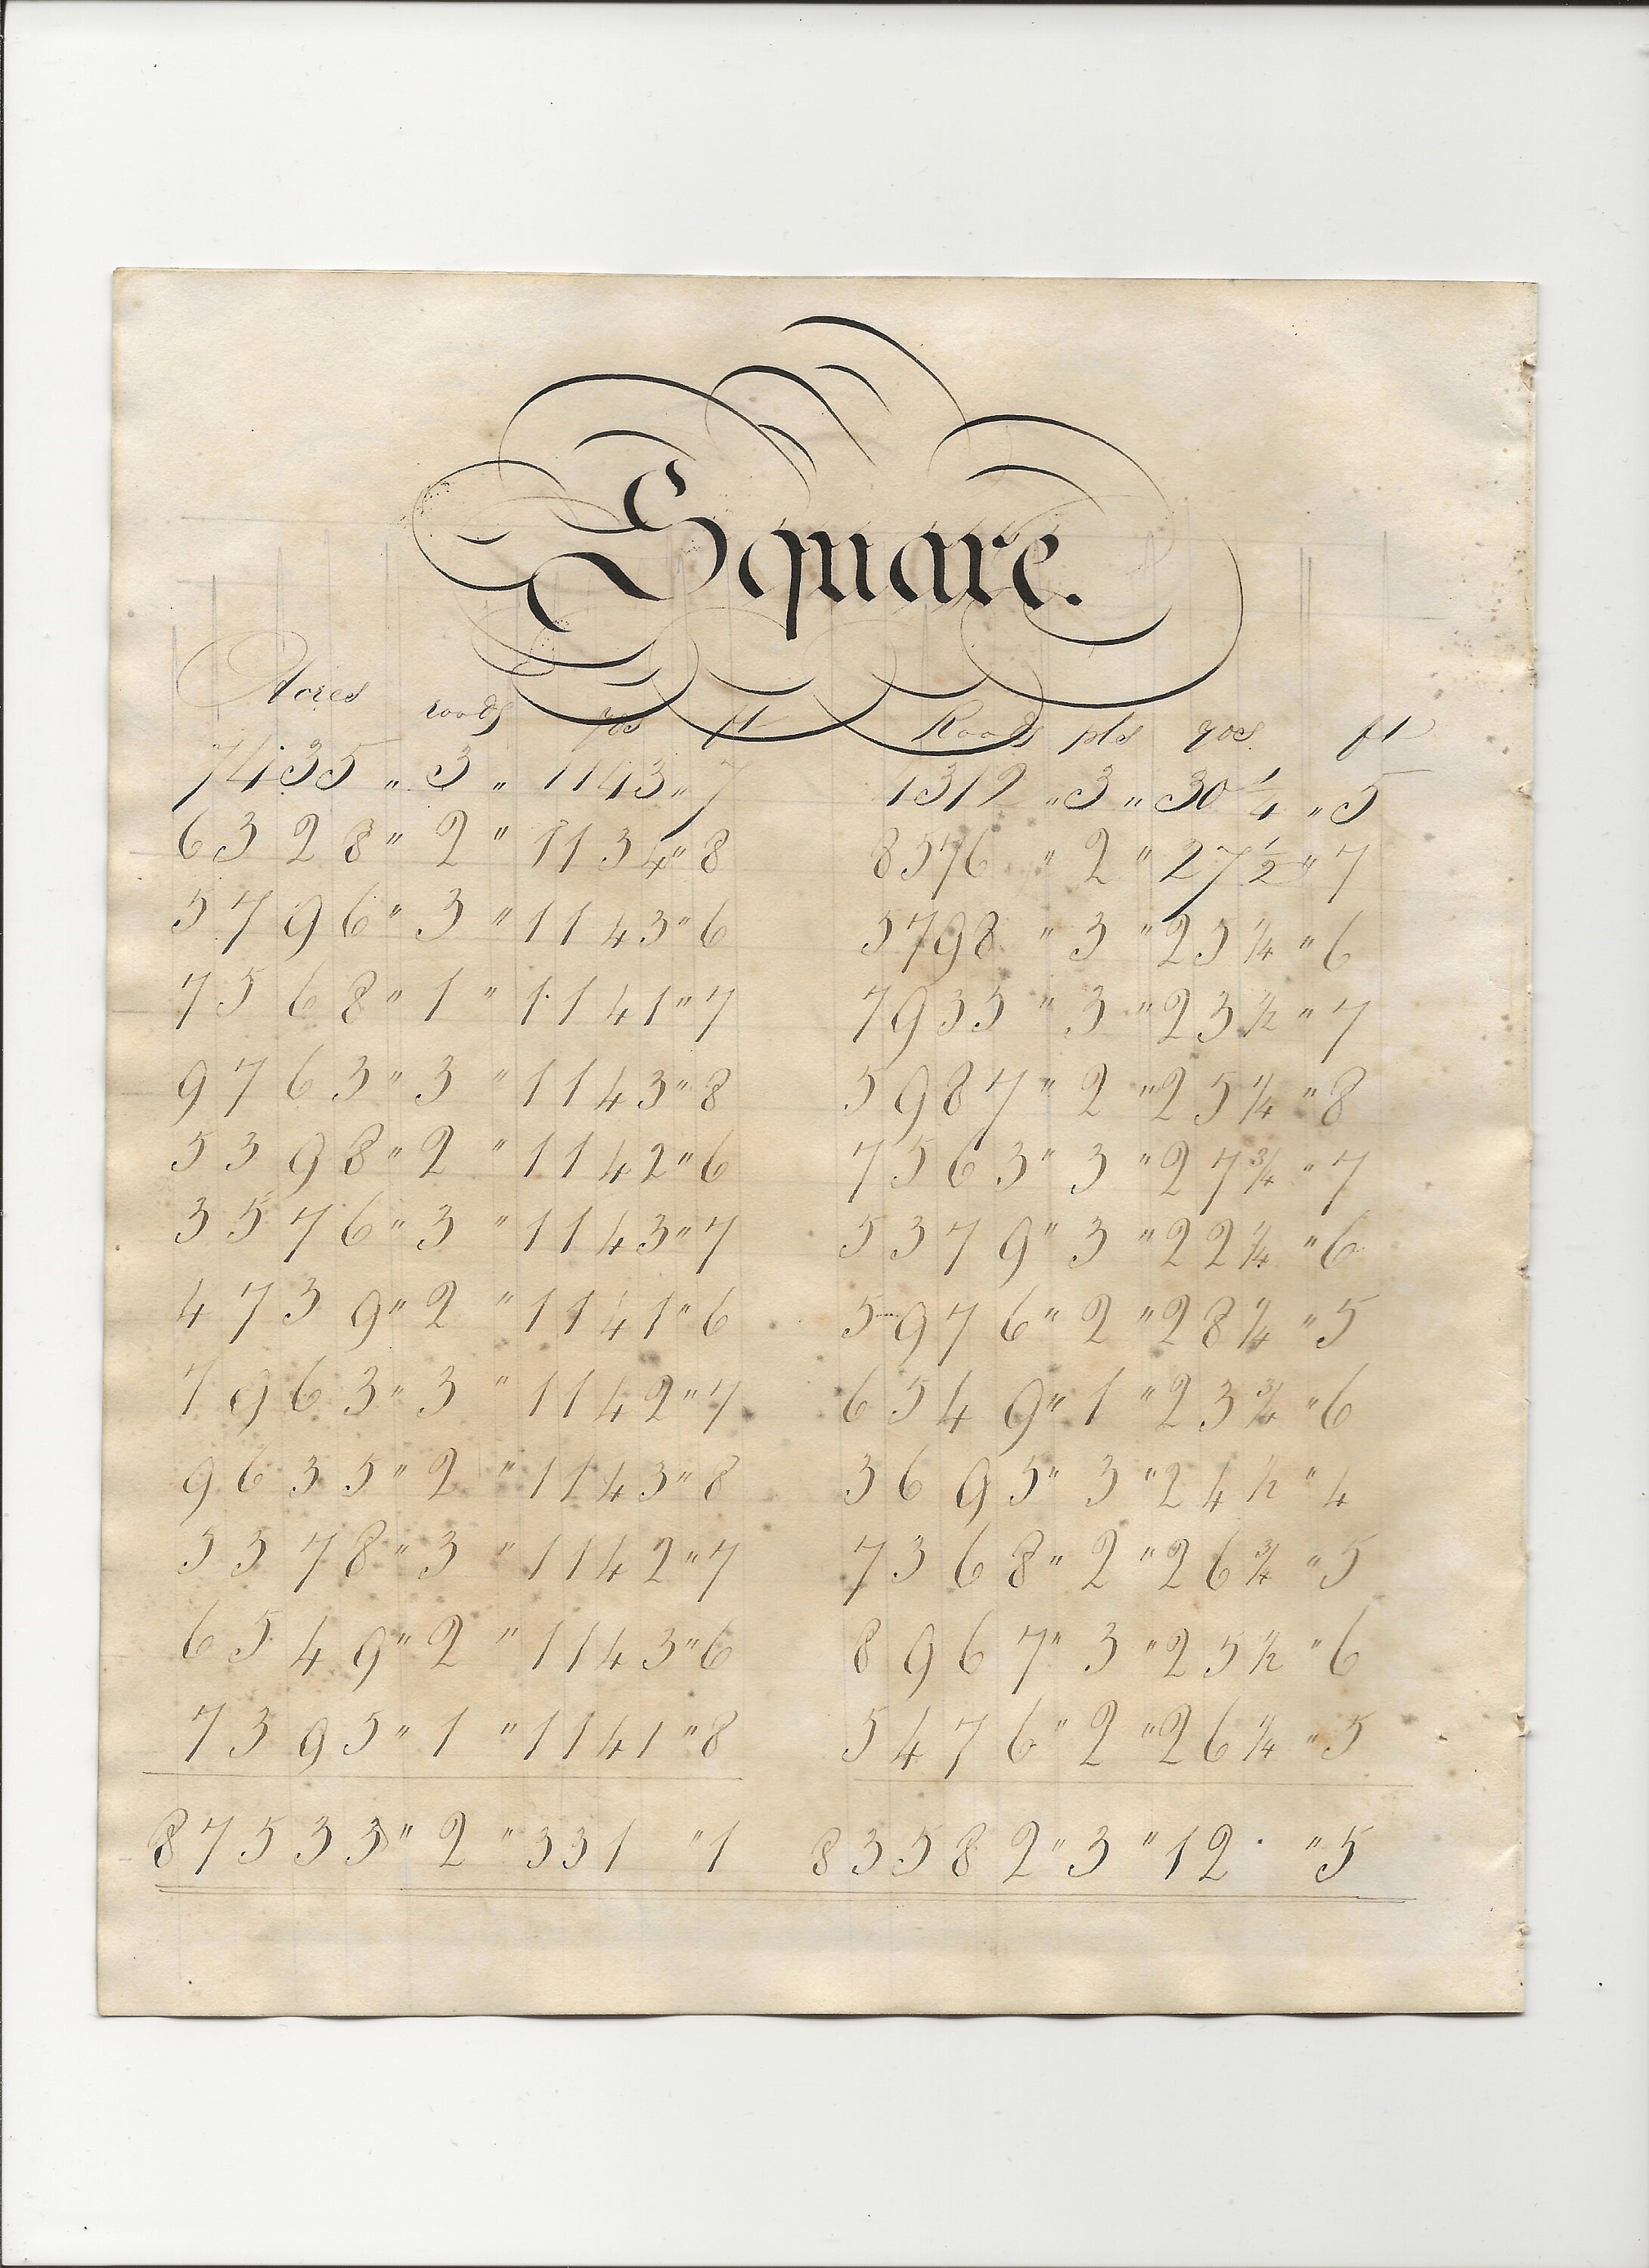 Square.
Acres roods yds ft Roods pls yds ft
7435 " 3 " 1143 " 7 1319 " 3 " 30 1/4 " 5
6328 " 2 " 1134 " 8 8576 " 2 " 27 1/2 " 7
5796 " 3 " 1143 " 6 5798 " 3 " 25 1/4 " 6
7568 " 1 " 1141 " 7 7935 " 3 " 23 1/2 " 7
9763 " 3 " 1143 " 8 5987 " 2 " 25 1/4 " 8
5398 " 2 " 1142 " 6 7563 " 3 " 27 3/4 " 7
3576 " 3 " 1143 " 7 5379 " 3 " 22 1/4 " 6
4739 " 2 " 1141 " 6 5976 " 2 " 28 1/4 " 5
7963 " 3 " 1142 " 7 6549 " 1 " 23 3/4 " 6
9635 " 2 " 1143 " 8 3695 " 3 " 24 1/2 " 4
5378 " 3 " 1142 " 7 7368 " 2 " 26 3/4 " 5
6549 " 2 " 1143 " 6 8967 " 3 " 25 1/2 " 6
7395 " 1 " 1141 " 8 5476 " 2 " 26 1/4 " 5
87533 " 2 " 331 " 1 83582 " 3 " 12 · " 5